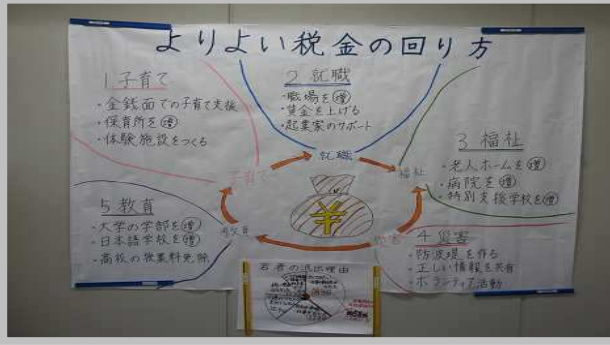 よりよい税金の回り方
1 子育て
・金銭面での子育て支援
・保育所を増
・体験施設をつくる
2 就職
・職場を増
・賃金を上げる
・起業家のサポート
3 福祉
・老人ホームを増
・病院を増
・特別支援学校を増
4 災害
・防波堤を作る
・正しい情報を共有
・ボランティア活動
5 教育
・大学の学部を増
・日本語学校を増
・高校の授業料免除
就職
子育て
福祉
教育
災害
¥
若者の流出理由